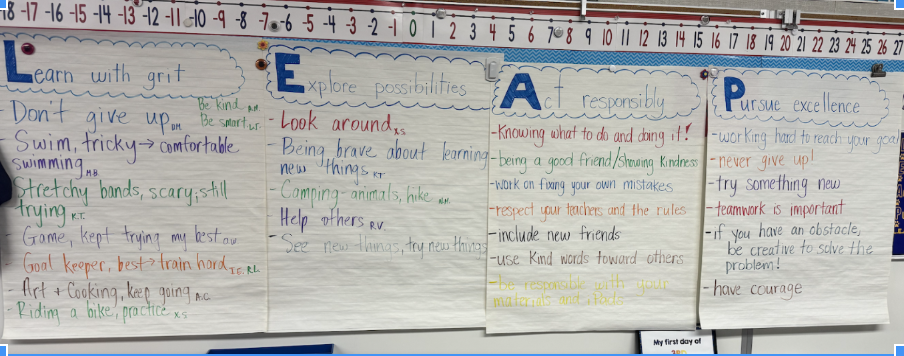 -18 -17 -16 -15 -14 -13 -12 -11 -10 -9 -8 -7 -6 -5 -4 -3 -2 -1 0 1 2 3 4 5 6 7 8 9 10 11 12 13 14 15 16 17 18 19 20 21 22 23 24 25 26 27
Learn with grit
Be kind
Be smart
Don't give up D.M.
- Swim, tricky → comfortable
swimming M.B.
Stretchy bands, scary, still
trying K.T.
- Game, kept trying my best
- Goal keeper, best → train hard R.L.
- Art + Cooking, keep going A.C.
- Riding a bike, practice X.S
Explore possibilities
- Look around X.S
- Being brave about learning
new things K.T
- Camping - animals, hike
Help others R.V.
- See new things, try new things
Act responsibly
- Knowing what to do and doing it!
- being a good friend/showing kindness
- work on fixing your own mistakes
- respect your teachers and the rules
- include new friends
- use kind words toward others
- be responsible with your
materials and iPads
Pursue excellence
- working hard to reach your goal
- never give up!
- try something new
- teamwork is important
- if you have an obstacle,
be creative to solve the
problem!
- have courage
My first day of